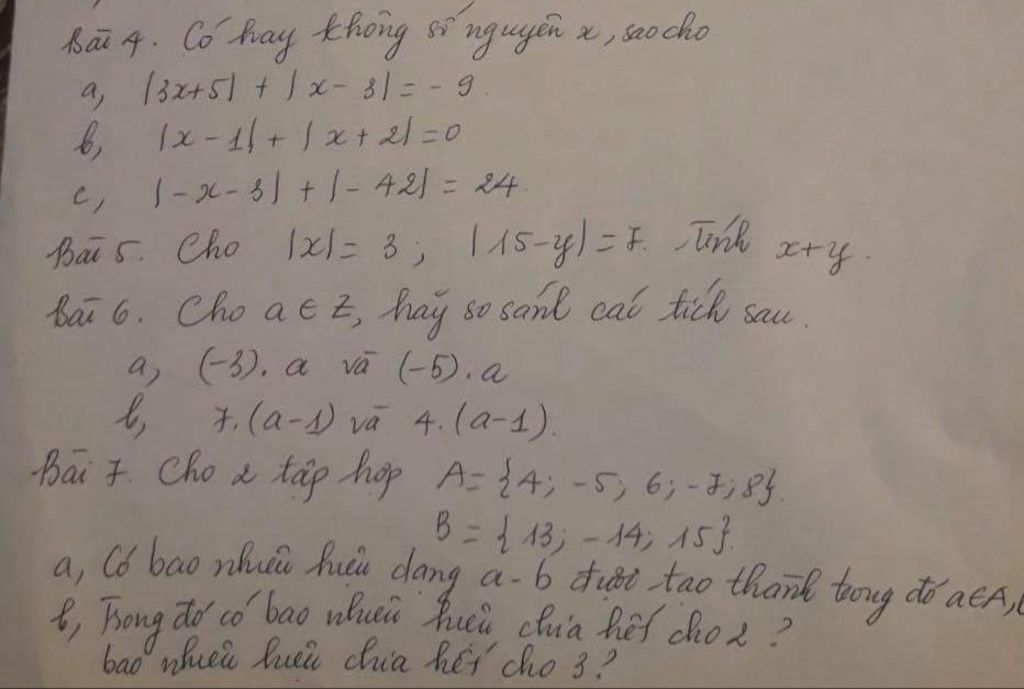 Bài 4. Có hay không số nguyên x, sao cho
a, |3x+5| + |x - 3| = - 9.
b, |x - 1| + |x + 2| = 0
c, |-x - 3| + |- 42| = 24.
Bài 5. Cho |x| = 3; |15-y| = 7. Tính x+y.
Bài 6. Cho a ∈ Z, hãy so sánh các tích sau.
a, (-3). a và (-5). a
b, 7. (a-1) và 4. (a-1).
Bài 7. Cho 2 tập hợp A = {4; -5; 6; -7; 8}.
B = {13; -14; 15}.
a, Có bao nhiêu hiệu dạng a - b được tạo thành trong đó a∈A,
b, Trong đó có bao nhiêu hiệu chia hết cho 2?
bao nhiêu hiệu chia hết cho 3?